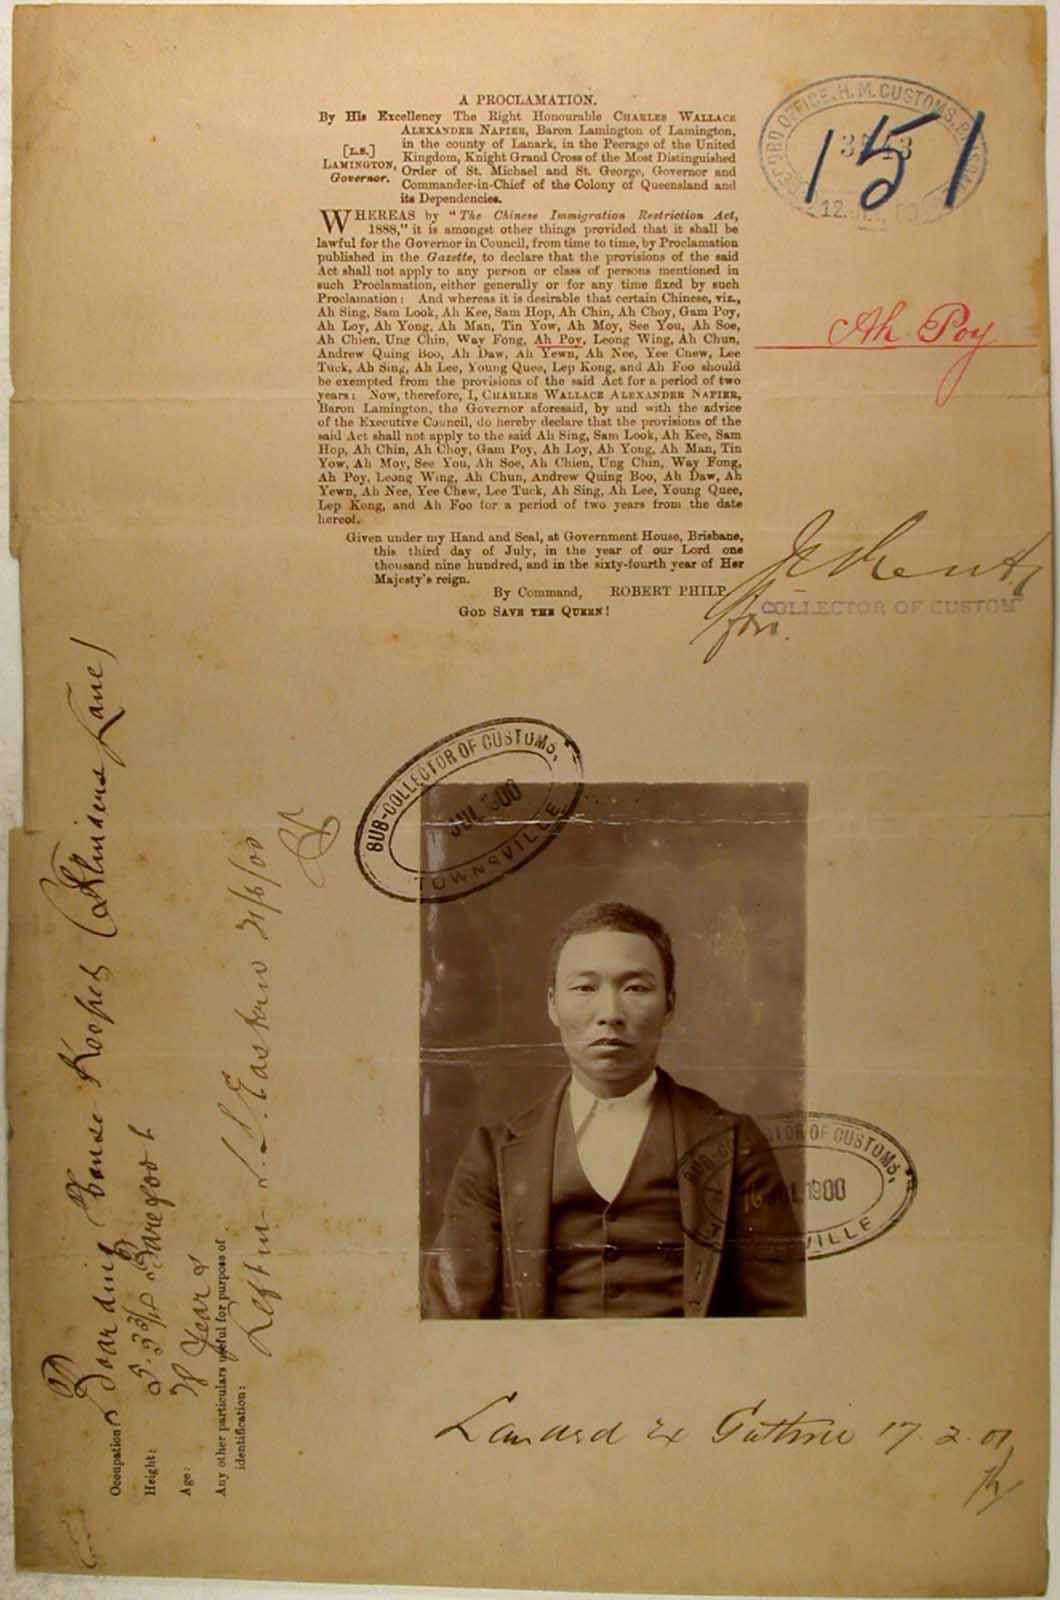 A PROCLAMATION.
By His Excellency The Right Honourable CHARLES WALLACE
ALEXANDER NAPIER, Baron Lamington of Lamington,
in the county of Lanark, in the Peerage of the United
[L.S.] Kingdom, Knight Grand Cross of the Most Distinguished
LAMINGTON, Order of St. Michael and St. George, Governor and
Governor. Commander-in-Chief of the Colony of Queensland and
its Dependencies.
WHEREAS by "The Chinese Immigration Restriction Act,
1888," it is amongst other things provided that it shall be
lawful for the Governor in Council, from time to time, by Proclamation
published in the Gazette, to declare that the provisions of the said
Act shall not apply to any person or class of persons mentioned in
such Proclamation, either generally or for any time fixed by such
Proclamation: And whereas it is desirable that certain Chinese, viz.,
Ah Sing, Sam Look, Ah Kee, Sam Hop, Ah Chin, Ah Choy, Gam Poy,
Ah Loy, Ah Yong, Ah Man, Tin Yow, Ah Moy, See You, Ah Soe,
Ah Chien, Ung Chin, Way Fong, Ah Poy, Leong Wing, Ah Chun,
Andrew Quing Boo, Ah Daw, Ah Yewn, Ah Nee, Yee Chew, Lee
Tuck, Ah Sing, Ah Lee, Young Quee, Lep Kong, and Ah Foo should
be exempted from the provisions of the said Act for a period of two
years: Now, therefore, I, CHARLES WALLACE ALEXANDER NAPIER,
Baron Lamington, the Governor aforesaid, by and with the advice
of the Executive Council, do hereby declare that the provisions of the
said Act shall not apply to the said Ah Sing, Sam Look, Ah Kee, Sam
Hop, Ah Chin, Ah Choy, Gam Poy, Ah Loy, Ah Yong, Ah Man, Tin
Yow, Ah Moy, See You, Ah Soe, Ah Chien, Ung Chin, Way Fong,
Ah Poy, Leong Wing, Ah Chun, Andrew Quing Boo, Ah Daw, Ah
Yewn, Ah Nee, Yee Chew, Lee Tuck, Ah Sing, Ah Lee, Young Quee,
Lep Kong, and Ah Foo for a period of two years from the date
hereof.
Given under my Hand and Seal, at Government House, Brisbane,
this third day of July, in the year of our Lord one
thousand nine hundred, and in the sixty-fourth year of Her
Majesty's reign.
By Command, ROBERT PHILP
GOD SAVE THE QUEEN!
RECORD OFFICE, H.M. CUSTOMS, BRISBANE
151
12
Ah Poy
for
COLLECTOR OF CUSTOM
SUB-COLLECTOR OF CUSTOMS,
JUL 1900
TOWNSVILLE
SUB-COLLECTOR OF CUSTOMS,
16 JUL 1900
TOWNSVILLE
Landed Ex Guthrie 17.2.01
Occupation: Boarding House Keeper (Flinders Lane)
Height: 5.3 3/4 Barefoot
Age: Years
Any other particulars useful for purpose of
identification:
Left in S.S. Eastern 21/6/00